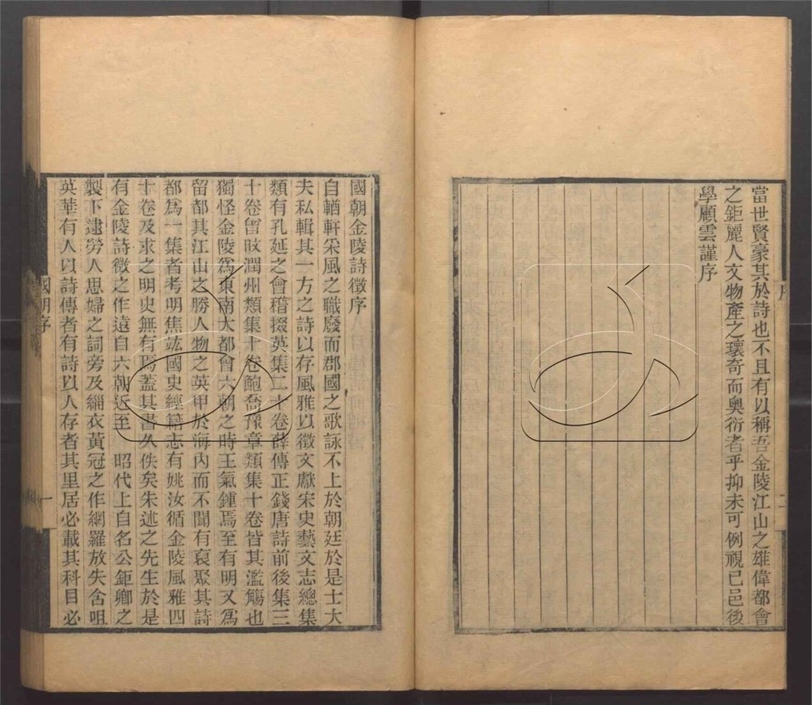 當世賢豪其於詩也不且有以稱吾金陵江山之雄偉都會
之鉅麗人文物產之瓌奇而奧衍者乎抑未可例視已邑後
學顧雲謹序
序
二
國朝金陵詩徵序
自輶軒采風之職廢而郡國之歌詠不上於朝廷於是士大
夫私輯其一方之詩以存風雅以徵文獻宋史藝文志總集
類有孔延之會稽掇英集二十卷薛傳正錢唐詩前後集三
十卷曾旼潤州類集十卷鮑喬豫章類集十卷皆其濫觴也
獨怪金陵爲東南大都會六朝之時王氣鍾焉至有明又爲
留都其江山之勝人物之英甲於海內而不聞有裒聚其詩
都爲一集者考明焦竑國史經籍志有姚汝循金陵風雅四
十卷及求之明史無有焉蓋其書久佚矣朱述之先生於是
有金陵詩徵之作遠自六朝近至 昭代上自名公鉅卿之
製下逮勞人思婦之詞旁及緇衣黃冠之作網羅放失含咀
英華有人以詩傳者有詩以人存者其里居必載其科目必
國朝序
一